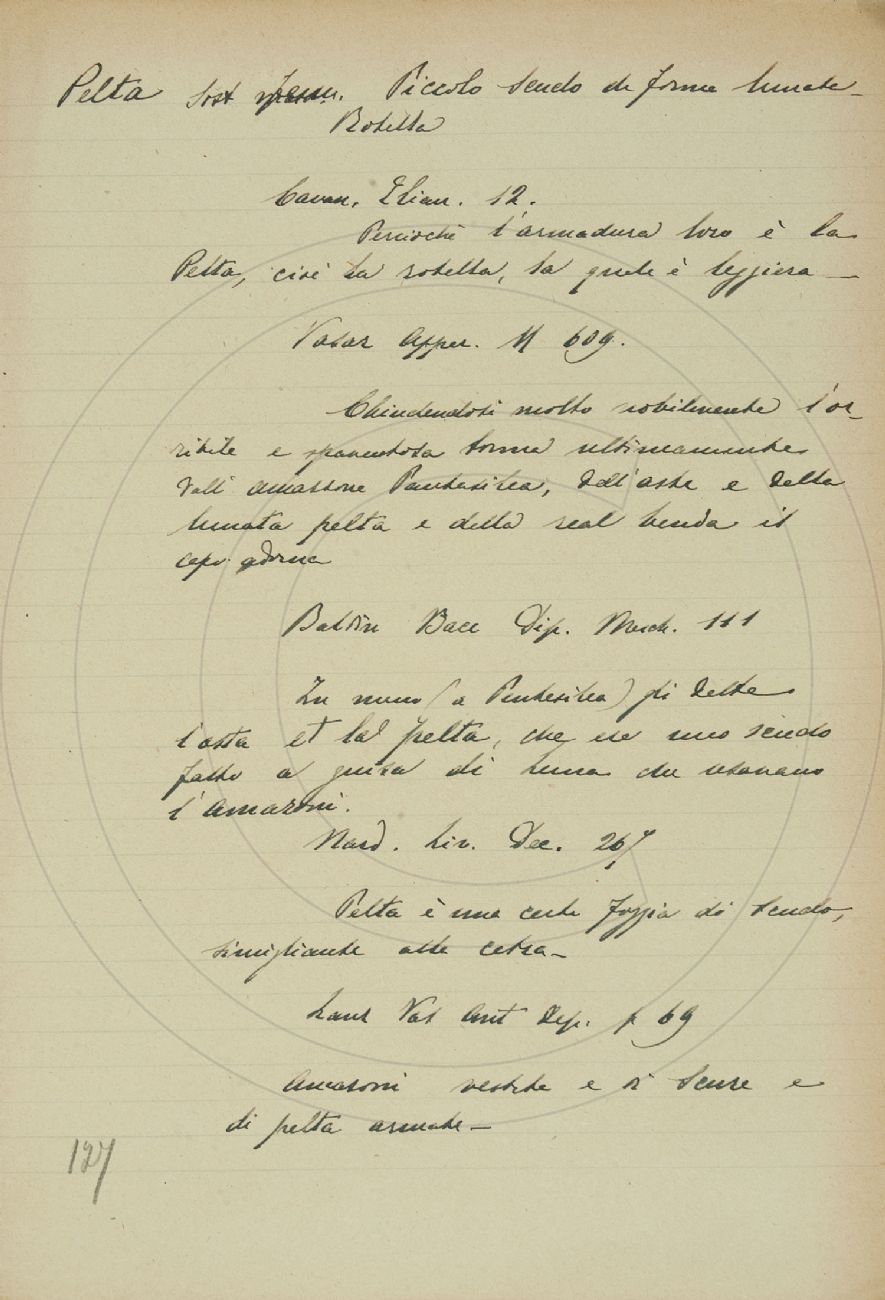 Pelta Sost femm. Piccolo scudo di forma lunata_
Rotella
Cavan. Elian. 12.
Perciochè l'armadura loro è la
Pelta, cioè la rotella, la quale è leggiera _
Vasar Apper. II 609.
Chiudendosi molto nobilmente l'or_
ribile e spaventosa torma ultimamente
dall' Amazzone Pantasilea, dell'aste e della
lunata pelta e della real benda il
capo adorna
Baldin Bacc Dip. Masch. 111
In mano (a Pantasilea) gli dette
l'asta et la pelta, che è uno scudo
fatto a guisa di luna che usavano
l'Amazoni.
Nard. Liv. Dec. 267
Pelta è una certa foggia di scudo,
simigliante alla cetra_
Laur Vat Ant Dip. p 69
Amazoni vestite e di scure e
di pelta armate_
127